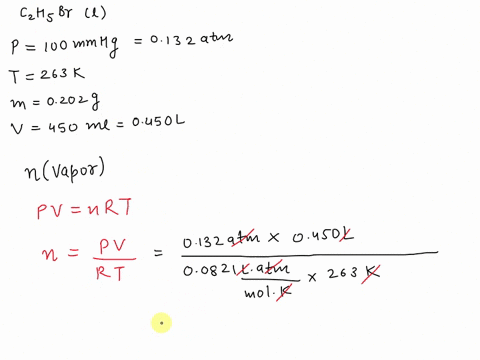 C₂H₅Br (l)
P = 100 mmHg = 0.132 atm
T = 263 K
m = 0.202 g
V = 450 ml = 0.450L
n (Vapor)
PV = nRT
n = PV / RT = 0.132 atm × 0.450L / 0.0821 L.atm / mol.K × 263 K